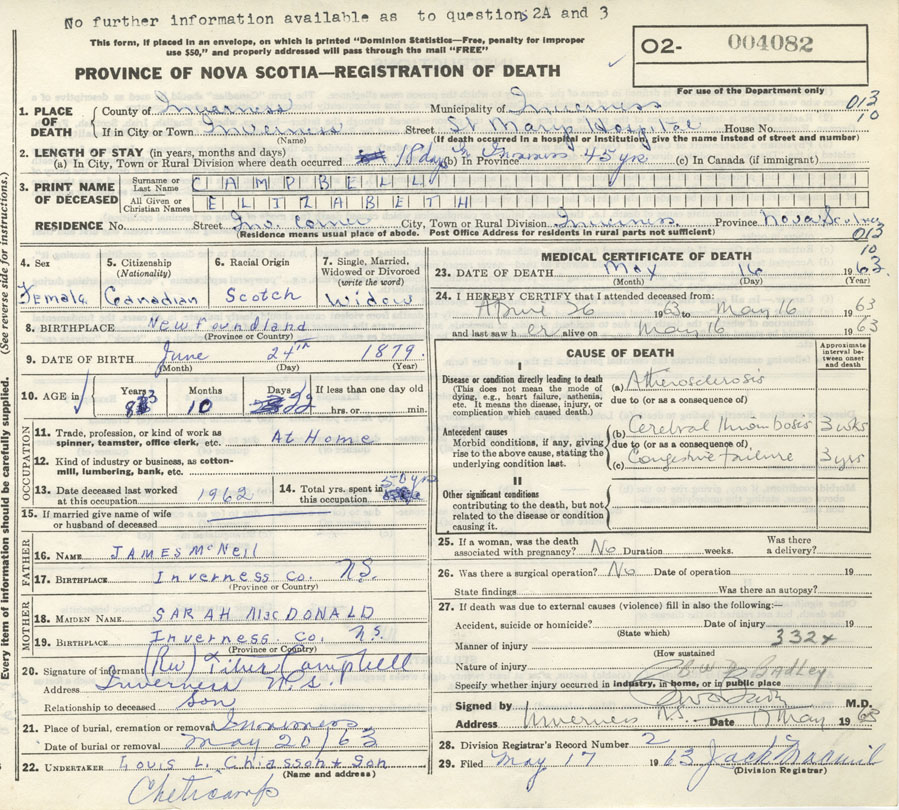 No further information available as to questions 2A and 3
This form, if placed in an envelope, on which is printed "Dominion Statistics—Free, penalty for improper
use $50," and properly addressed will pass through the mail "FREE"
O2- 004082
PROVINCE OF NOVA SCOTIA—REGISTRATION OF DEATH
For use of the Department only
1. PLACE OF DEATH County of Inverness Municipality of Inverness 013
If in City or Town Inverness Street St Mary's Hospital House No. 10
(Name) (If death occurred in a hospital or institution, give the name instead of street and number)
2. LENGTH OF STAY (in years, months and days)
(a) In City, Town or Rural Division where death occurred 18 days (b) In Province 45 yrs (c) In Canada (if immigrant)
3. PRINT NAME OF DECEASED Surname or Last Name CAMPBELL
All Given or Christian Names ELIZABETH
RESIDENCE No. Street Inv. Corner City, Town or Rural Division Inverness Province Nova Scotia
(Residence means usual place of abode. Post Office Address for residents in rural parts not sufficient) 013
10
4. Sex 5. Citizenship (Nationality) 6. Racial Origin 7. Single, Married, Widowed or Divorced (write the word)
Female Canadian Scotch Widow
8. BIRTHPLACE Newfoundland
(Province or Country)
9. DATE OF BIRTH June 24th 1879.
(Month) (Day) (Year)
10. AGE in Years 83 Months 10 Days 22 If less than one day old
hrs. or min.
OCCUPATION
11. Trade, profession, or kind of work as spinner, teamster, office clerk, etc. At Home
12. Kind of industry or business, as cotton-mill, lumbering, bank, etc.
13. Date deceased last worked at this occupation 1962 14. Total yrs. spent in this occupation 50 yrs
15. If married give name of wife or husband of deceased
FATHER
16. NAME JAMES McNeil
17. BIRTHPLACE Inverness Co. N.S.
(Province or Country)
MOTHER
18. MAIDEN NAME SARAH MacDONALD
19. BIRTHPLACE Inverness Co. N.S.
(Province or Country)
20. Signature of informant (Rev) Campbell
Address Inverness N.S.
Relationship to deceased Son
21. Place of burial, cremation or removal Inverness
Date of burial or removal May 20/63
22. UNDERTAKER Louis L. Chiasson & Son
(Name and address)
Cheticamp
MEDICAL CERTIFICATE OF DEATH
23. DATE OF DEATH May 16 1963.
(Month) (Day) (Year)
24. I HEREBY CERTIFY that I attended deceased from:
April 26 1963 to May 16 1963
and last saw her alive on May 16 1963
CAUSE OF DEATH
Approximate interval between onset and death
I
Disease or condition directly leading to death
(This does not mean the mode of dying, e.g., heart failure, asthenia, etc. It means the disease, injury, or complication which caused death.)
(a) Atherosclerosis
due to (or as a consequence of)
Antecedent causes
Morbid conditions, if any, giving rise to the above cause, stating the underlying condition last.
(b) Cerebral thromboses 3 wks
due to (or as a consequence of)
(c) Congestive failure 3 yrs
II
Other significant conditions
contributing to the death, but not related to the disease or condition causing it.
25. If a woman, was the death associated with pregnancy? No Duration weeks. Was there a delivery?
26. Was there a surgical operation? No Date of operation 19
State findings Was there an autopsy?
27. If death was due to external causes (violence) fill in also the following:—
Accident, suicide or homicide? Date of injury 19
(State which)
Manner of injury 332+
(How sustained
Nature of injury
Specify whether injury occurred in industry, in home, or in public place
Signed by M.D.
Address Inverness N.S. Date 17 May 1963
28. Division Registrar's Record Number 2
29. Filed May 17 1963 Jack MacNeil
(Division Registrar)
Every item of information should be carefully supplied. (See reverse side for instructions.)